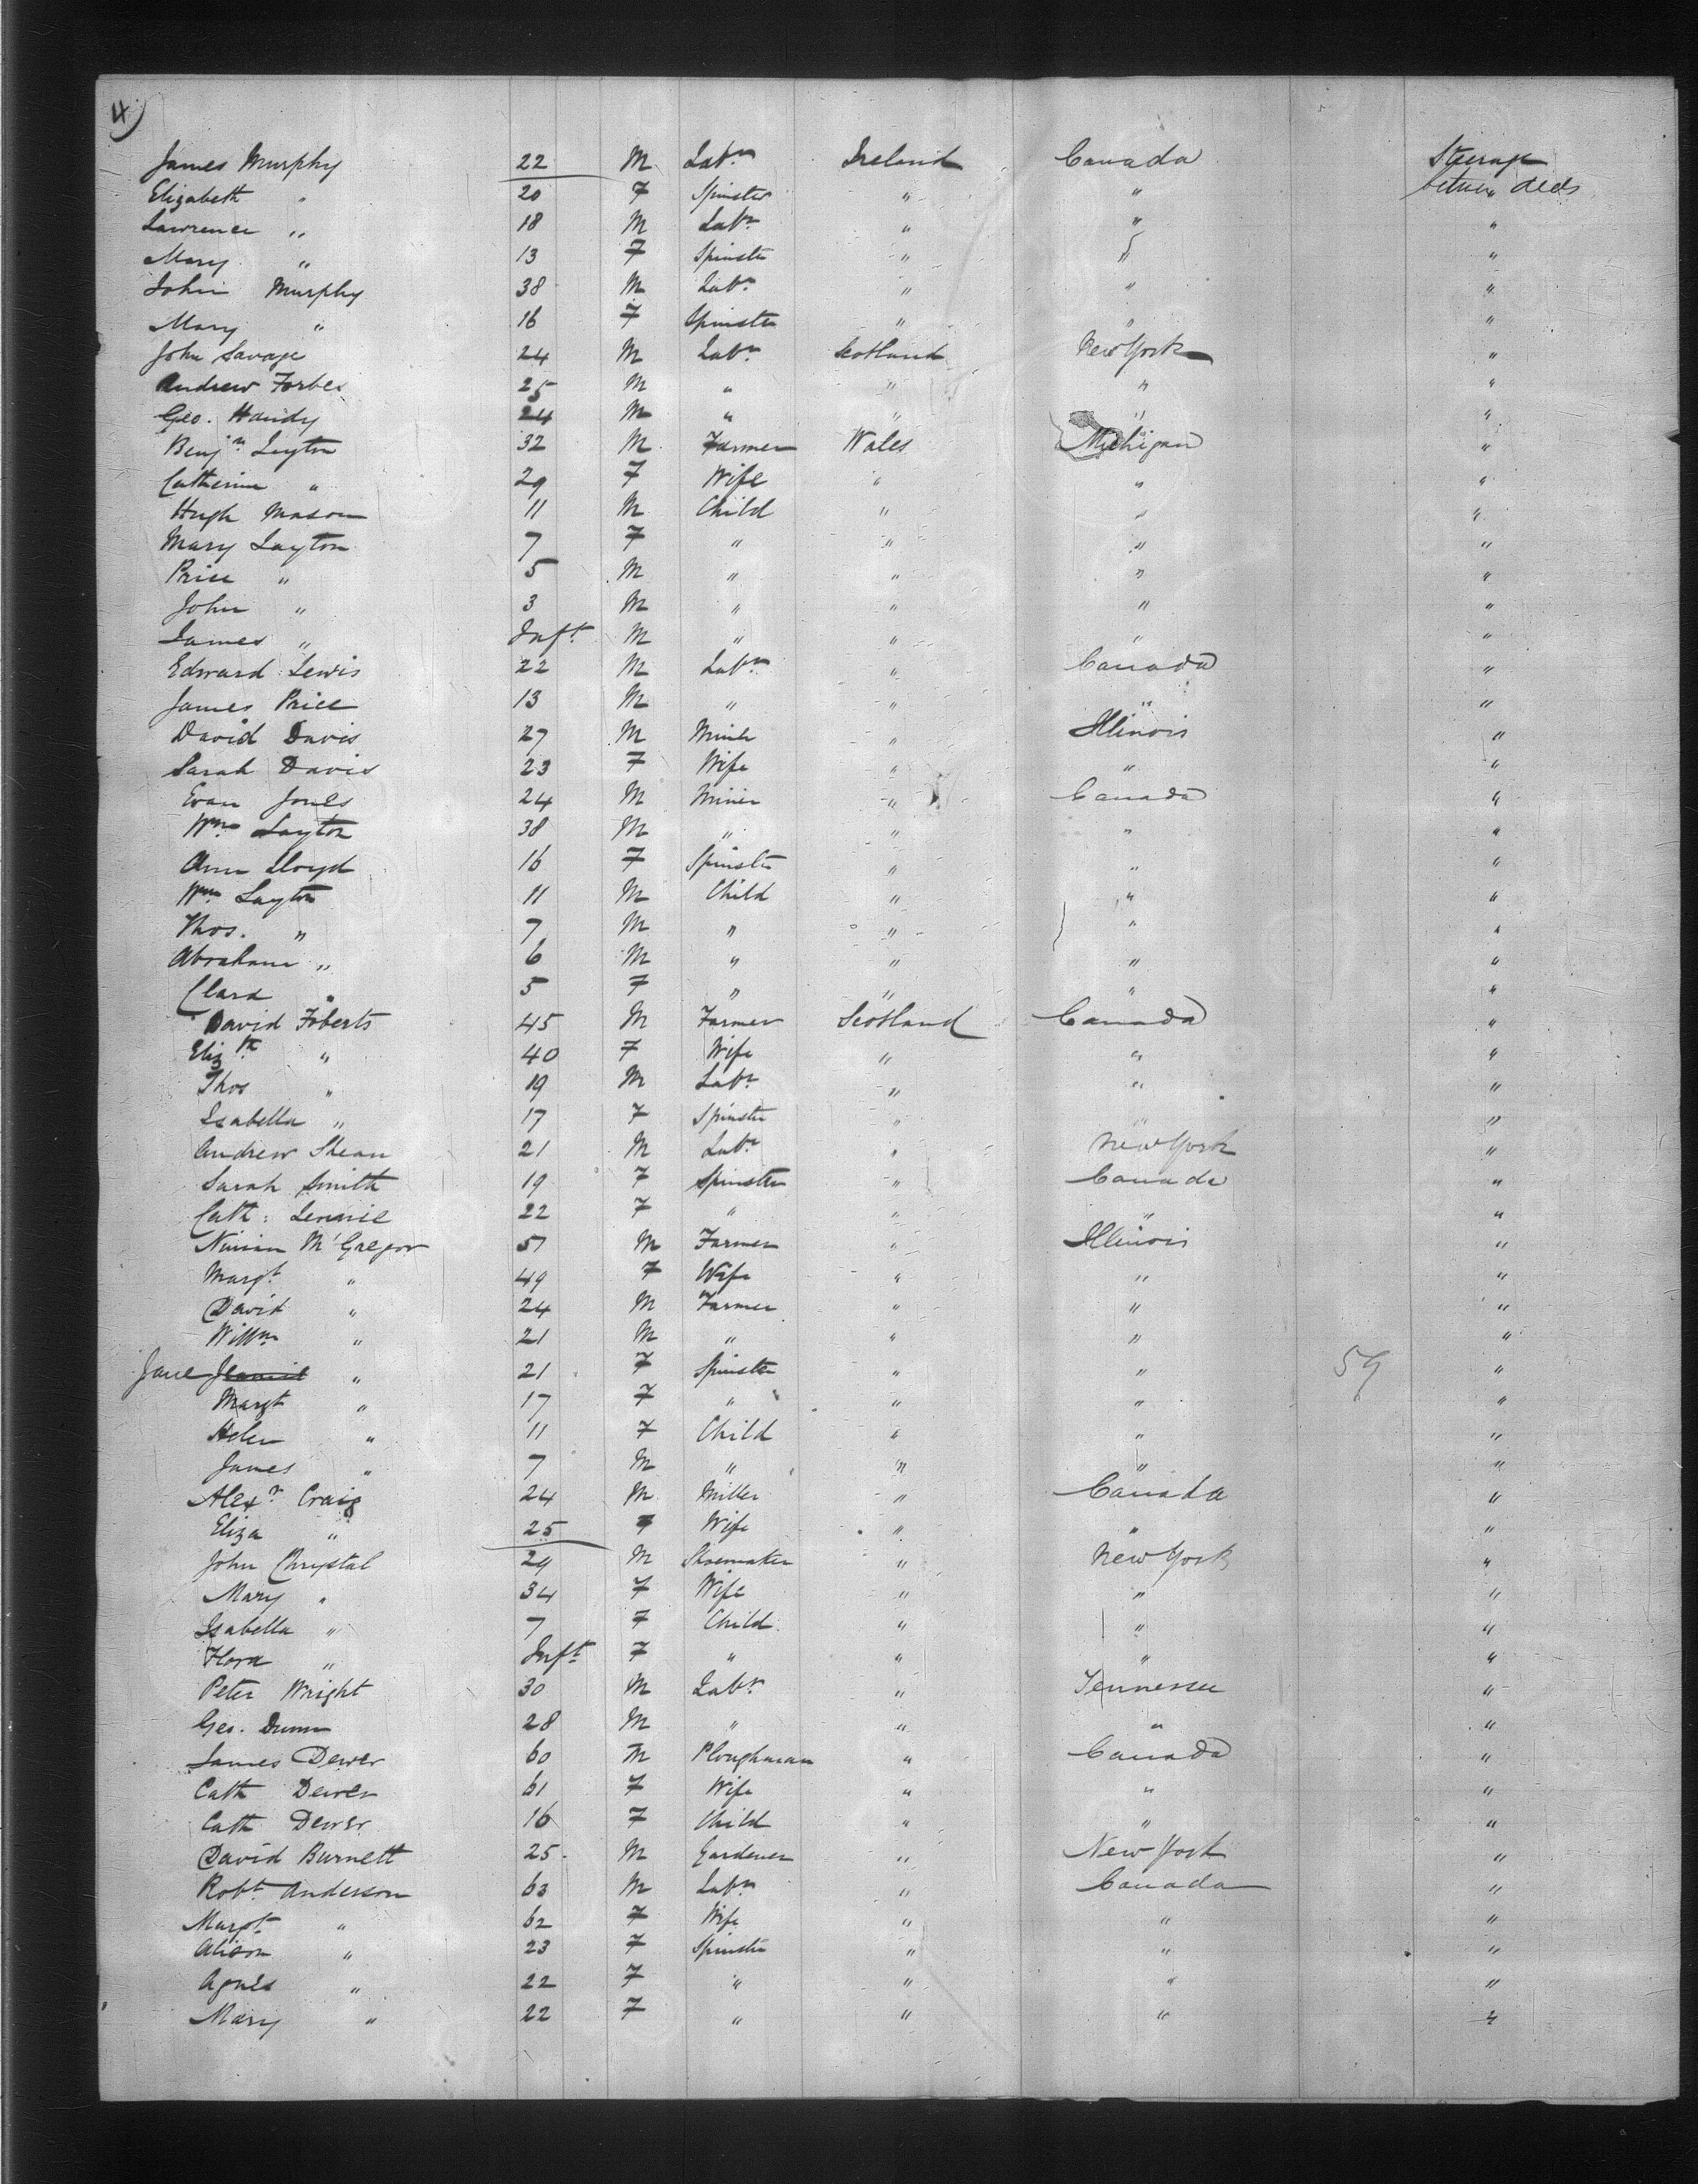 4)
James Murphy 22 M Labr Ireland Canada Steerage
Elizabeth " 20 F Spinster " " between decks
Lawrence " 18 M Labr " " "
Mary " 13 F Spinster " " "
John Murphy 38 M Labr " " "
Mary " 16 F Spinster " " "
John Savage 24 M Labr Scotland New York "
Andrew Forbes 25 M " " " "
Geo. Handy 24 M " " " "
Benjn Layton 32 M Farmer Wales Michigan "
Catherine " 29 F Wife " " "
Hugh Mason 11 M Child " " "
Mary Layton 7 F " " " "
Price " 5 M " " " "
John " 3 M " " " "
James " Inft M " " " "
Edward Lewis 22 M Labr " Canada "
James Price 13 M " " " "
David Davis 27 M Miner " Illinois "
Sarah Davis 23 F Wife " " "
Evan Jones 24 M Miner " Canada "
Wm Layton 38 M " " " "
Ann Lloyd 16 F Spinster " " "
Wm Layton 11 M Child " " "
Thos. " 7 M " " " "
Abraham " 6 M " " " "
Clara " 5 F " " " "
David Foberts 45 M Farmer Scotland Canada "
Elizth " 40 F Wife " " "
Thos " 19 M Labr " " "
Isabella " 17 F Spinster " " "
Andrew Shean 21 M Labr " New York "
Sarah Smith 19 F Spinster " Canada "
Cath: Lennie 22 F " " " "
Ninian McGregor 51 M Farmer " Illinois "
Margt " 49 F Wife " " "
David " 24 M Farmer " " "
Willm " 21 M " " " "
Jane " 21 F Spinster " " 59 "
Margt " 17 F " " " "
Helen " 11 F Child " " "
James " 7 M " " " "
Alexr Craig 24 M Miller " Canada "
Eliza " 25 F Wife " " "
John Chrystal 29 M Shoemaker " New York "
Mary " 34 F Wife " " "
Isabella " 7 F Child " " "
Flora " Inft F " " " "
Peter Wright 30 M Labr " Tennessee "
Geo. Dunn 28 M " " " "
James Dewer 60 M Ploughman " Canada "
Cath Dewer 61 F Wife " " "
Cath Dewer 16 F Child " " "
David Burnett 25 M Gardener " New York "
Robt Anderson 63 M Labr " Canada "
Margt " 62 F Wife " " "
Alison " 23 F Spinster " " "
Agnes " 22 F " " " "
Mary " 22 F " " " "